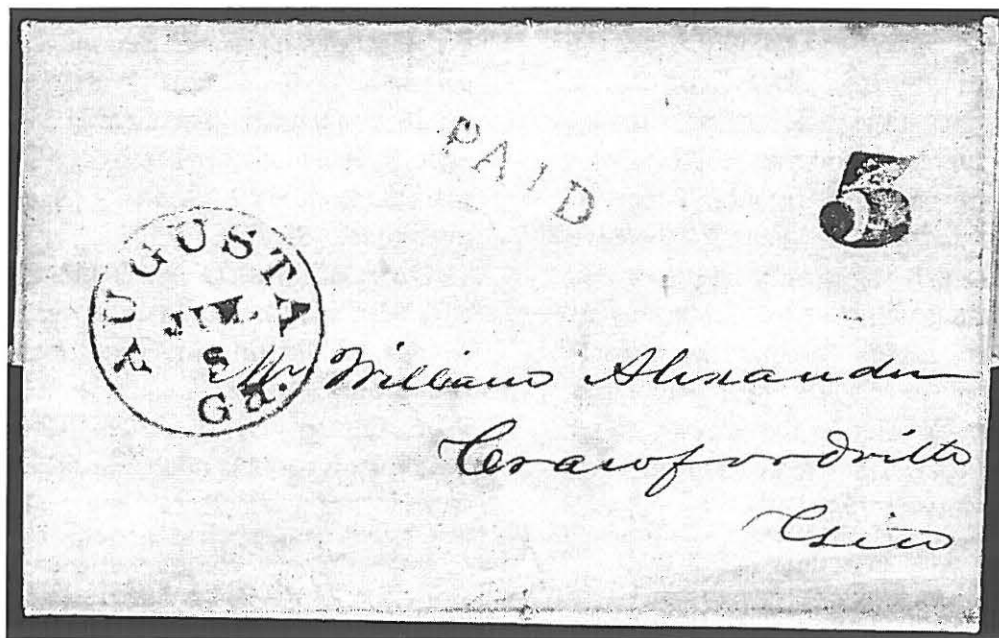 PAID
5
AUGUSTA
Ga.
Mr William Alexander
Crawfordville